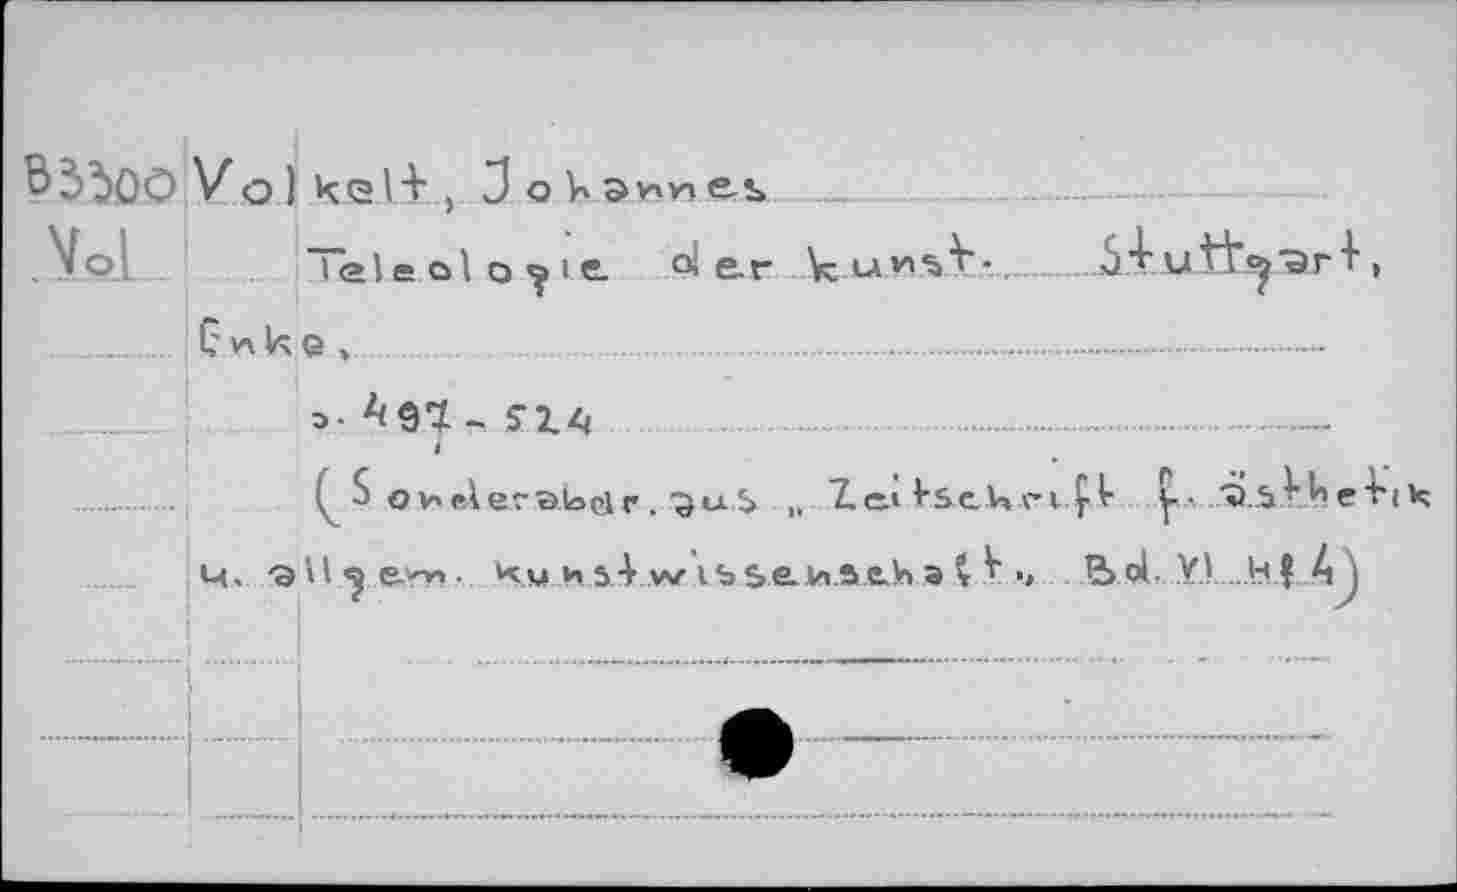 B3300 Volkelt, Johannes
Vol Teleologie der kunst. Stuttgart,
Enke,
s. 497 - 514
(Sonderabdr. aus „Zeitschrift f. ästhetik
u. allgem. kunstwissenschaft", Bd. VI Hf 4)